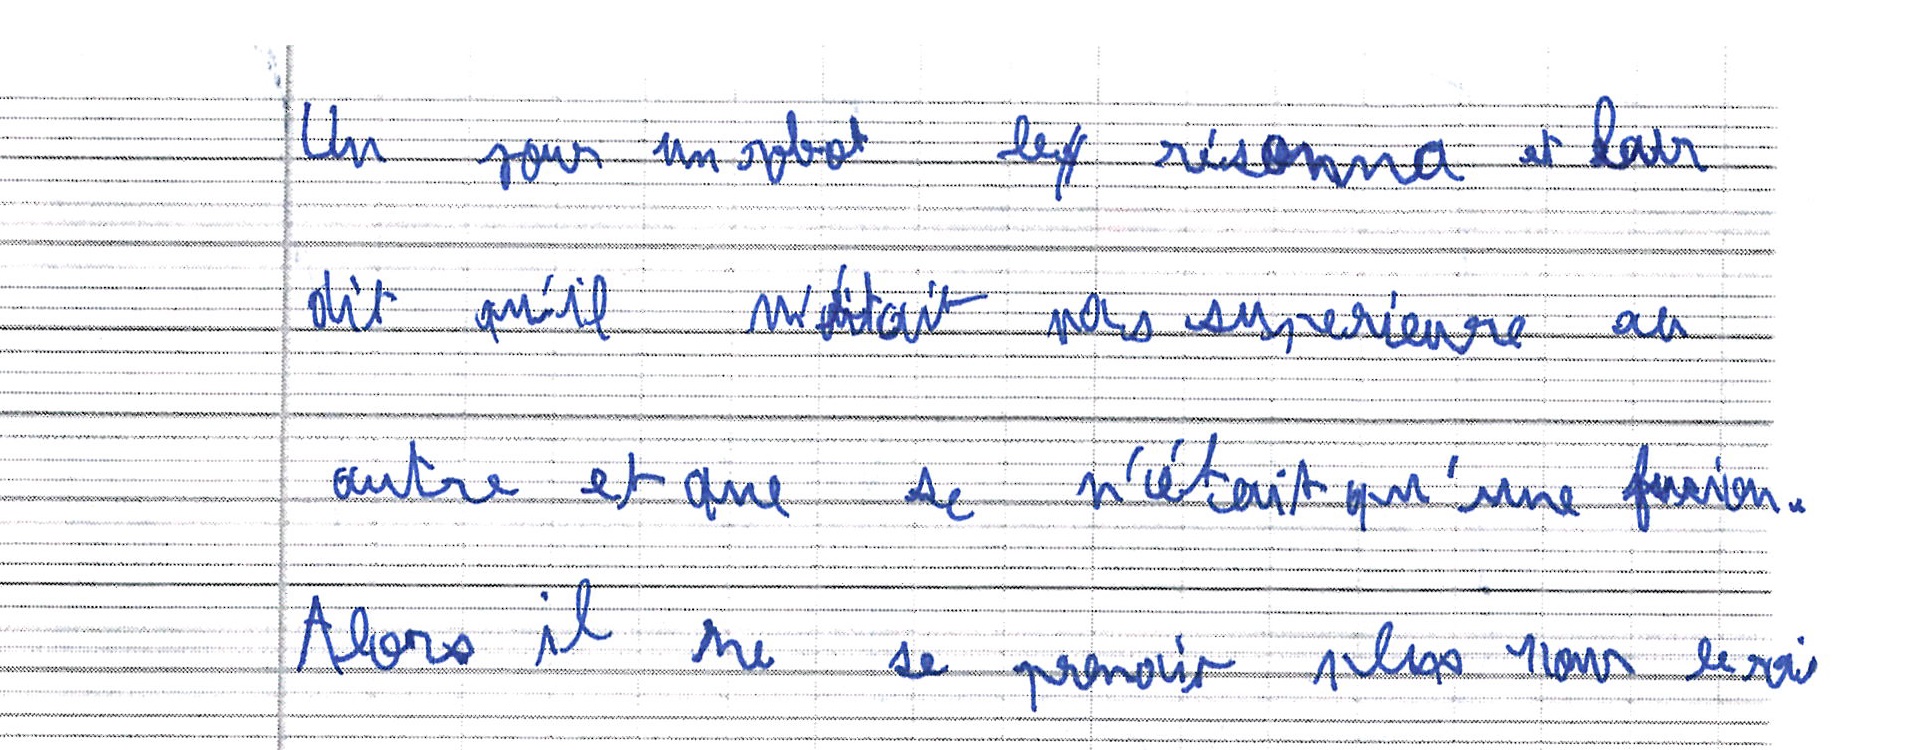 Un jour un robot les résonna et leur
dit qu'il n'était pas superieure au
autre et que se n'était qu'une fusion.
Alors il ne se prenait plus pour le roi